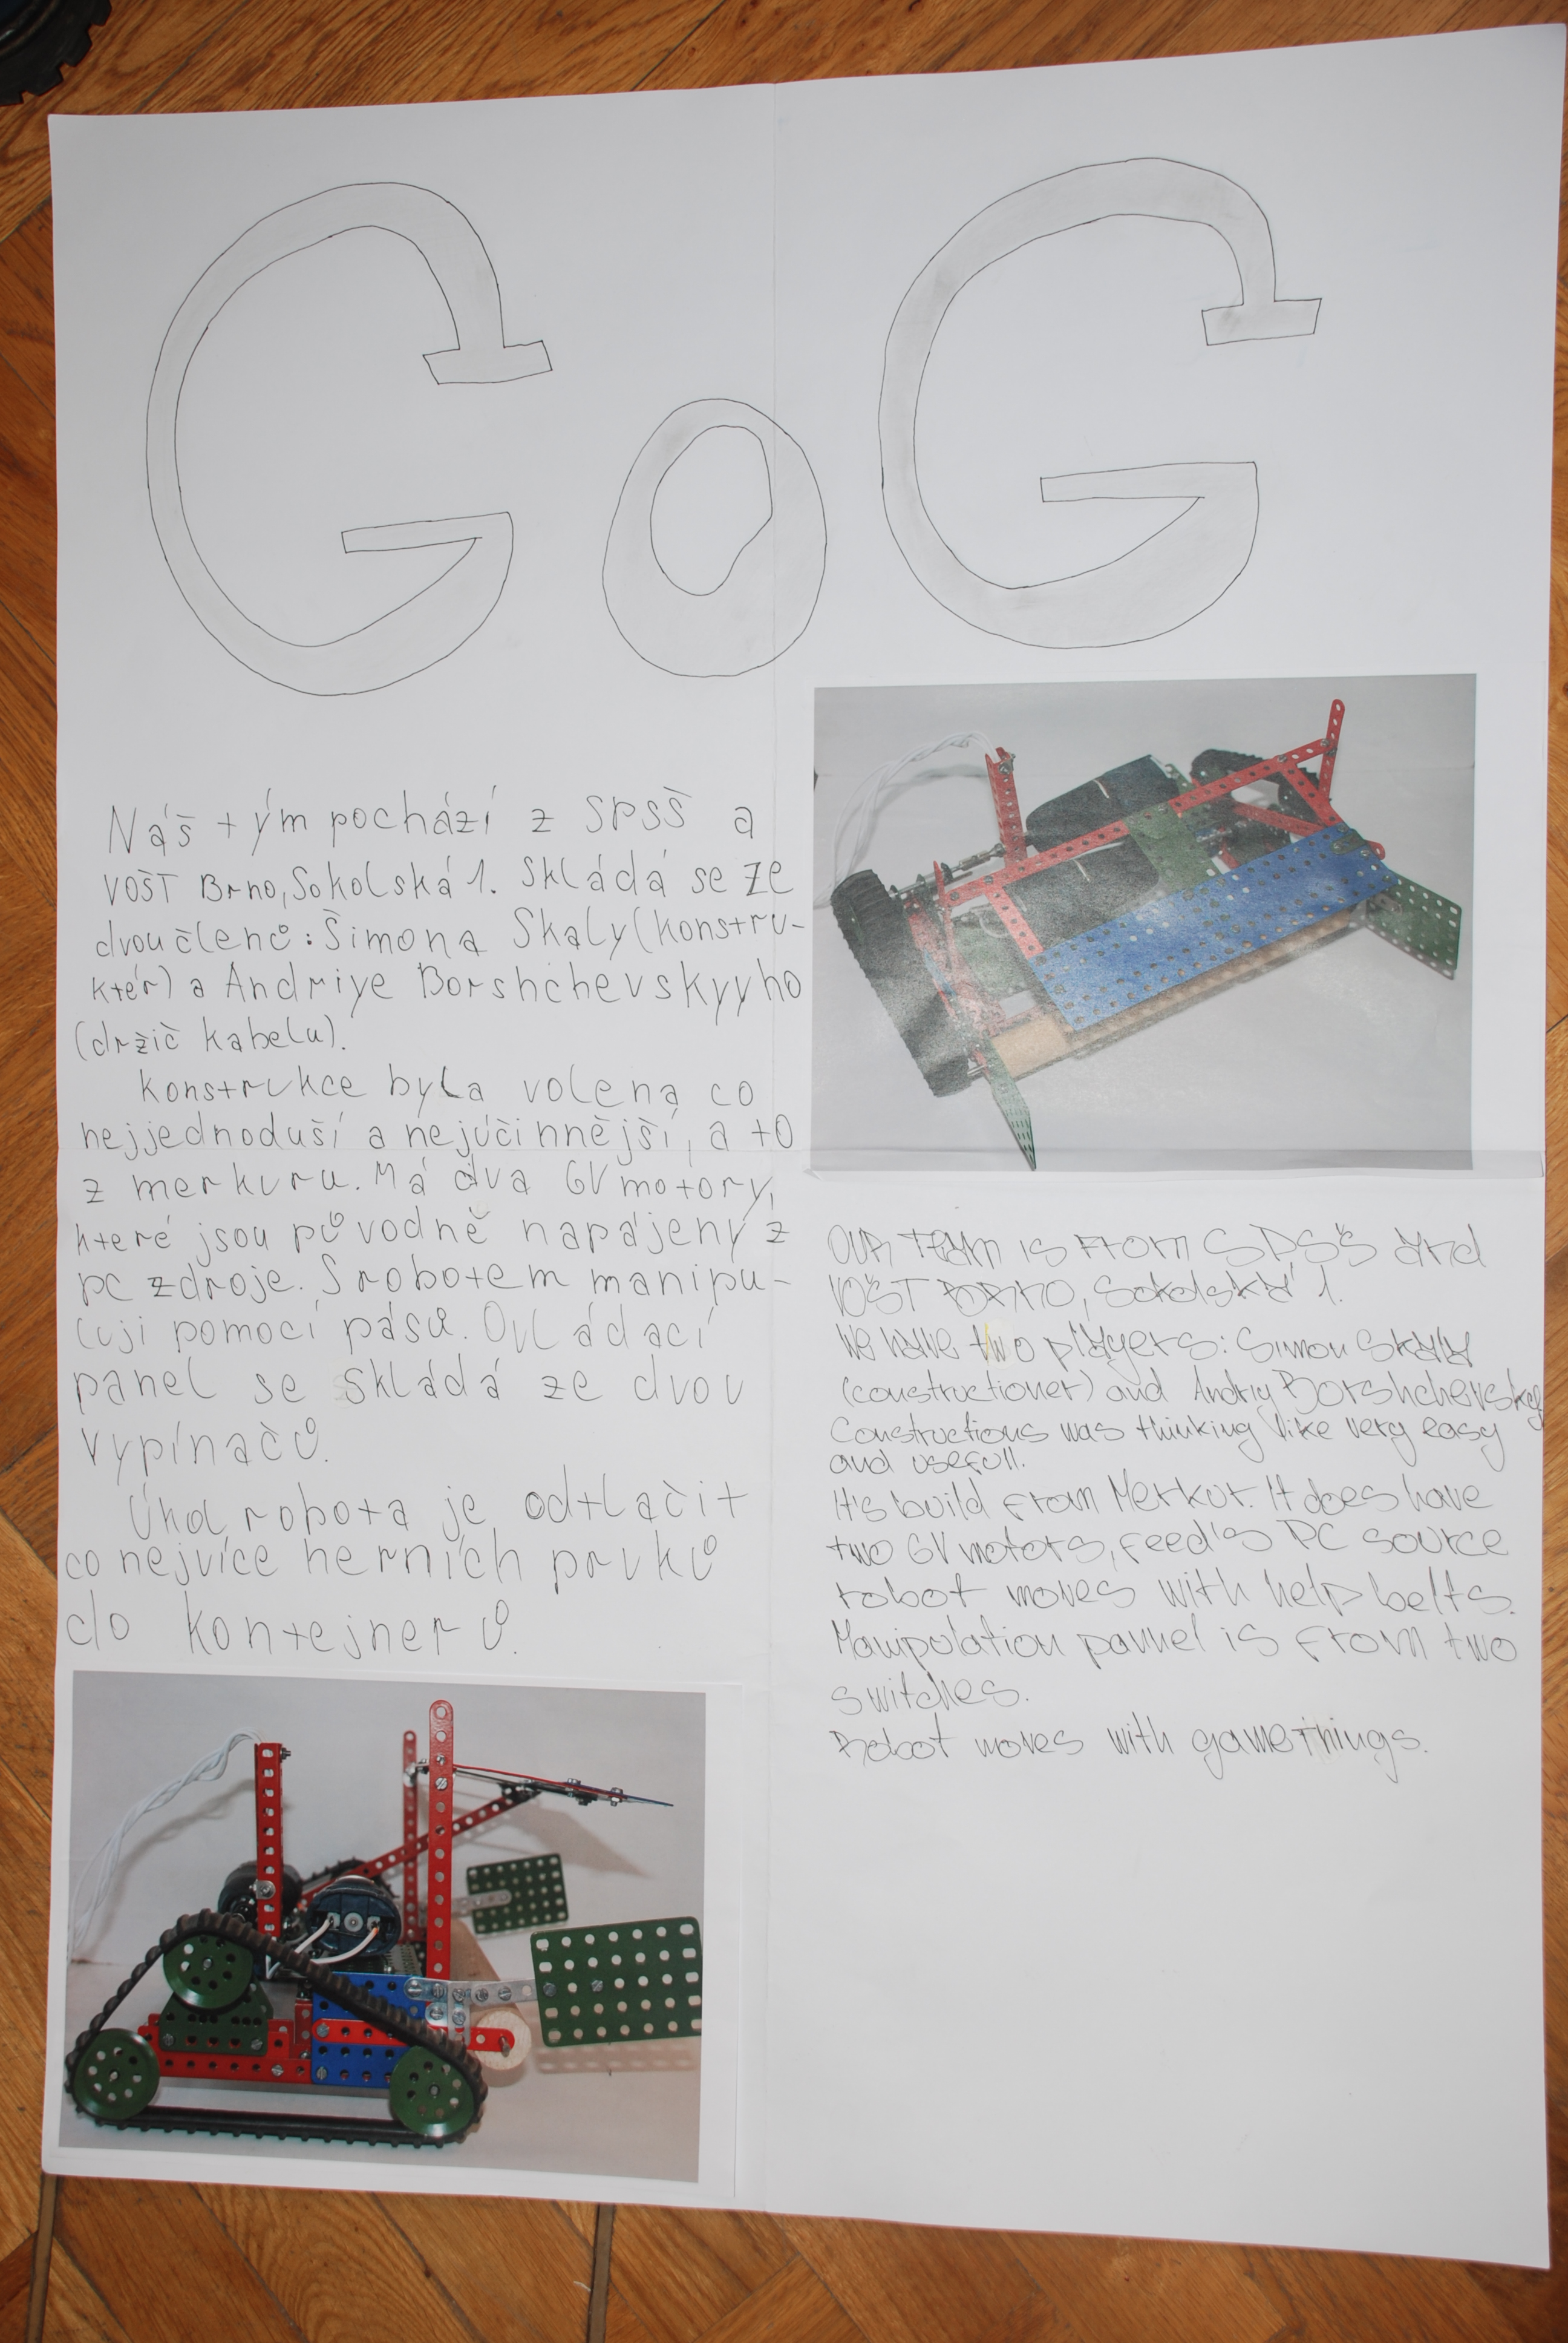 GoG
Náš tým pochází z SPSŠ a
VOŠT Brno, Sokolská 1. Skládá se ze
dvou členů: Šimona Skaly (konstru-
ktér) a Andriye Borshchevskyyho
(držič kabelu).
Konstrukce byla volena co
nejjednoduší a nejúčinnější, a to
z merkuru. Má dva 6V motory,
které jsou původně napájeny z
pc zdroje. S robotem manipu-
luji pomocí pásů. Ovládací
panel se skládá ze dvou
vypínačů.
Úkol robota je odtlačit
co nejvíce herních prvků
do kontejnerů.
OUR TEAM IS FROM SPSŠ and
VOŠT BRNO, Sokolská 1.
We have two players: Simon Skala
(constructioner) and Andriy Borshchevskyy
Constructions was thinking like very easy
and usefull.
It's build from Merkur. It does have
two 6V motors, feed's PC source
robot moves with help belts.
Manipulation pannel is from two
switches.
Robot moves with game things.